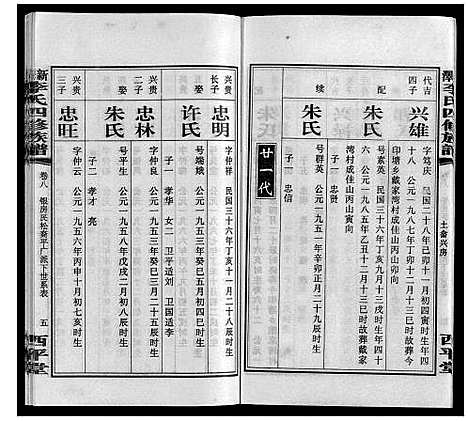 李氏四修族谱
土畲兴房
西平堂
代吉
四子
兴雄
字笃庆 民国二十八年己卯十一月初四寅时生年四
十八 公元一九八七年丁卯十二月十三巳时故葬今
印塘乡戴家湾村成佳山丙山卯向
配
朱氏
号素英 民国三十六年丁亥十一月十三戌时生年四十
六 公元一九八五年乙丑十二月十三巳时故葬戴家
湾村成佳山丙山寅向
子一 忠贤
续
朱氏
号群英 公元一九五一年辛卯正月二十九辰时生
子一 忠信
廿一代
兴贵
长子
忠明
字仲祥 民国三十六年丁亥十一月二十八辰时生
娶
许氏
号端娥 公元一九五三年癸巳五月初五辰时生
子一 孝华 女二 卫平适刘 卫国适李
兴贵
二子
忠林
字仲良 公元一九五三年癸巳三月二十五辰时生
娶
朱氏
号平生 公元一九五八年戊戌二月初八辰时生
子二 孝才 亮
兴贵
三子
忠旺
字仲云 公元一九五六年丙申十月初七亥时生
李氏四修族谱
卷八 银房民松裔平广派下世系表
五
西平堂